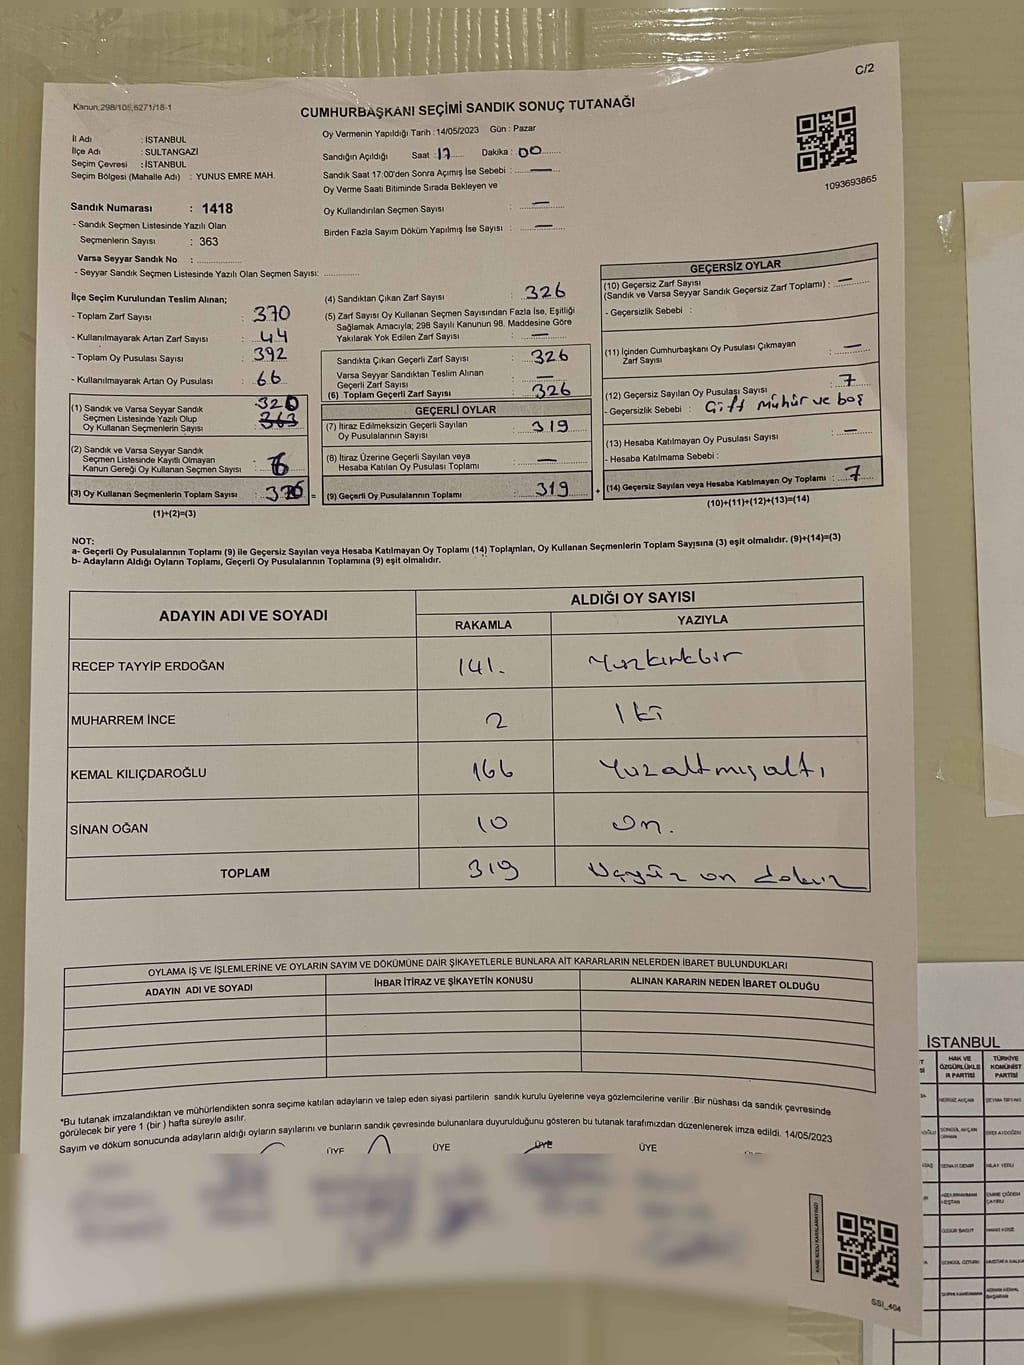 C/2
Kanun;298/105;6271/18-1
CUMHURBAŞKANI SEÇİMİ SANDIK SONUÇ TUTANAĞI
İl Adı : İSTANBUL
İlçe Adı : SULTANGAZİ
Seçim Çevresi : İSTANBUL
Seçim Bölgesi (Mahalle Adı) : YUNUS EMRE MAH.
Oy Vermenin Yapıldığı Tarih : 14/05/2023 Gün : Pazar
Sandığın Açıldığı Saat : 17 Dakika : 00
Sandık Saat 17:00'den Sonra Açımış İse Sebebi : —
Oy Verme Saati Bitiminde Sırada Bekleyen ve
Oy Kullandırılan Seçmen Sayısı : —
Birden Fazla Sayım Döküm Yapılmış İse Sayısı : —
1093693865
Sandık Numarası : 1418
- Sandık Seçmen Listesinde Yazılı Olan
Seçmenlerin Sayısı : 363
Varsa Seyyar Sandık No :
- Seyyar Sandık Seçmen Listesinde Yazılı Olan Seçmen Sayısı:
İlçe Seçim Kurulundan Teslim Alınan;
- Toplam Zarf Sayısı : 370
- Kullanılmayarak Artan Zarf Sayısı : 44
- Toplam Oy Pusulası Sayısı : 392
- Kullanılmayarak Artan Oy Pusulası : 66
(1) Sandık ve Varsa Seyyar Sandık
Seçmen Listesinde Yazılı Olup
Oy Kullanan Seçmenlerin Sayısı : 320 363
(2) Sandık ve Varsa Seyyar Sandık
Seçmen Listesinde Kayıtlı Olmayan
Kanun Gereği Oy Kullanan Seçmen Sayısı : 6
(3) Oy Kullanan Seçmenlerin Toplam Sayısı :
(1)+(2)=(3)
(4) Sandıktan Çıkan Zarf Sayısı : 326
(5) Zarf Sayısı Oy Kullanan Seçmen Sayısından Fazla İse, Eşitliği
Sağlamak Amacıyla; 298 Sayılı Kanunun 98. Maddesine Göre
Yakılarak Yok Edilen Zarf Sayısı : —
Sandıkta Çıkan Geçerli Zarf Sayısı : 326
Varsa Seyyar Sandıktan Teslim Alınan
Geçerli Zarf Sayısı : —
(6) Toplam Geçerli Zarf Sayısı : 326
GEÇERLİ OYLAR
(7) İtiraz Edilmeksizin Geçerli Sayılan
Oy Pusulalarının Sayısı : 319
(8) İtiraz Üzerine Geçerli Sayılan veya
Hesaba Katılan Oy Pusulası Toplamı : —
= (9) Geçerli Oy Pusulalarının Toplamı : 319 +
GEÇERSİZ OYLAR
(10) Geçersiz Zarf Sayısı
(Sandık ve Varsa Seyyar Sandık Geçersiz Zarf Toplamı) : —
- Geçersizlik Sebebi :
(11) İçinden Cumhurbaşkanı Oy Pusulası Çıkmayan
Zarf Sayısı : —
(12) Geçersiz Sayılan Oy Pusulası Sayısı : 7
- Geçersizlik Sebebi : Çift Mühür ve boş
(13) Hesaba Katılmayan Oy Pusulası Sayısı : —
- Hesaba Katılmama Sebebi :
(14) Geçersiz Sayılan veya Hesaba Katılmayan Oy Toplamı : 7
(10)+(11)+(12)+(13)=(14)
NOT:
a- Geçerli Oy Pusulalarının Toplamı (9) ile Geçersiz Sayılan veya Hesaba Katılmayan Oy Toplamı (14) Toplamları, Oy Kullanan Seçmenlerin Toplam Sayısına (3) eşit olmalıdır. (9)+(14)=(3)
b- Adayların Aldığı Oyların Toplamı, Geçerli Oy Pusulalarının Toplamına (9) eşit olmalıdır.
ADAYIN ADI VE SOYADI
ALDIĞI OY SAYISI
RAKAMLA YAZIYLA
RECEP TAYYİP ERDOĞAN 141. Yüzkırkbir
MUHARREM İNCE 2 İki
KEMAL KILIÇDAROĞLU 166 Yüzaltmışaltı
SİNAN OĞAN 10 On.
TOPLAM 319 Üçyüz on dokuz
OYLAMA İŞ VE İŞLEMLERİNE VE OYLARIN SAYIM VE DÖKÜMÜNE DAİR ŞİKAYETLERLE BUNLARA AİT KARARLARIN NELERDEN İBARET BULUNDUKLARI
ADAYIN ADI VE SOYADI İHBAR İTİRAZ VE ŞİKAYETİN KONUSU ALINAN KARARIN NEDEN İBARET OLDUĞU
*Bu tutanak imzalandıktan ve mühürlendikten sonra seçime katılan adayların ve talep eden siyasi partilerin sandık kurulu üyelerine veya gözlemcilerine verilir .Bir nüshası da sandık çevresinde
görülecek bir yere 1 (bir ) hafta süreyle asılır.
Sayım ve döküm sonucunda adayların aldığı oyların sayılarını ve bunların sandık çevresinde bulunanlara duyurulduğunu gösteren bu tutanak tarafımızdan düzenlenerek imza edildi. 14/05/2023
ÜYE ÜYE ÜYE ÜYE
SSI_404
İSTANBUL
HAK VE
ÖZGÜRLÜKLE
R PARTİSİ
TÜRKİYE
KOMÜNİST
PARTİSİ